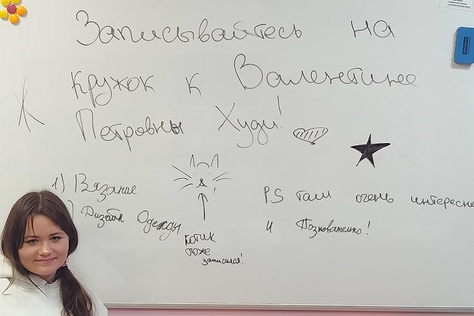 Записывайтесь на
кружок к Валентине
Петровны Худи!
1) Вязание
) Дизайн Одежды
котик
тоже
записался!
PS там очень интересно
и Познавательно!